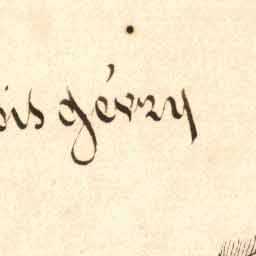 ois gévzy